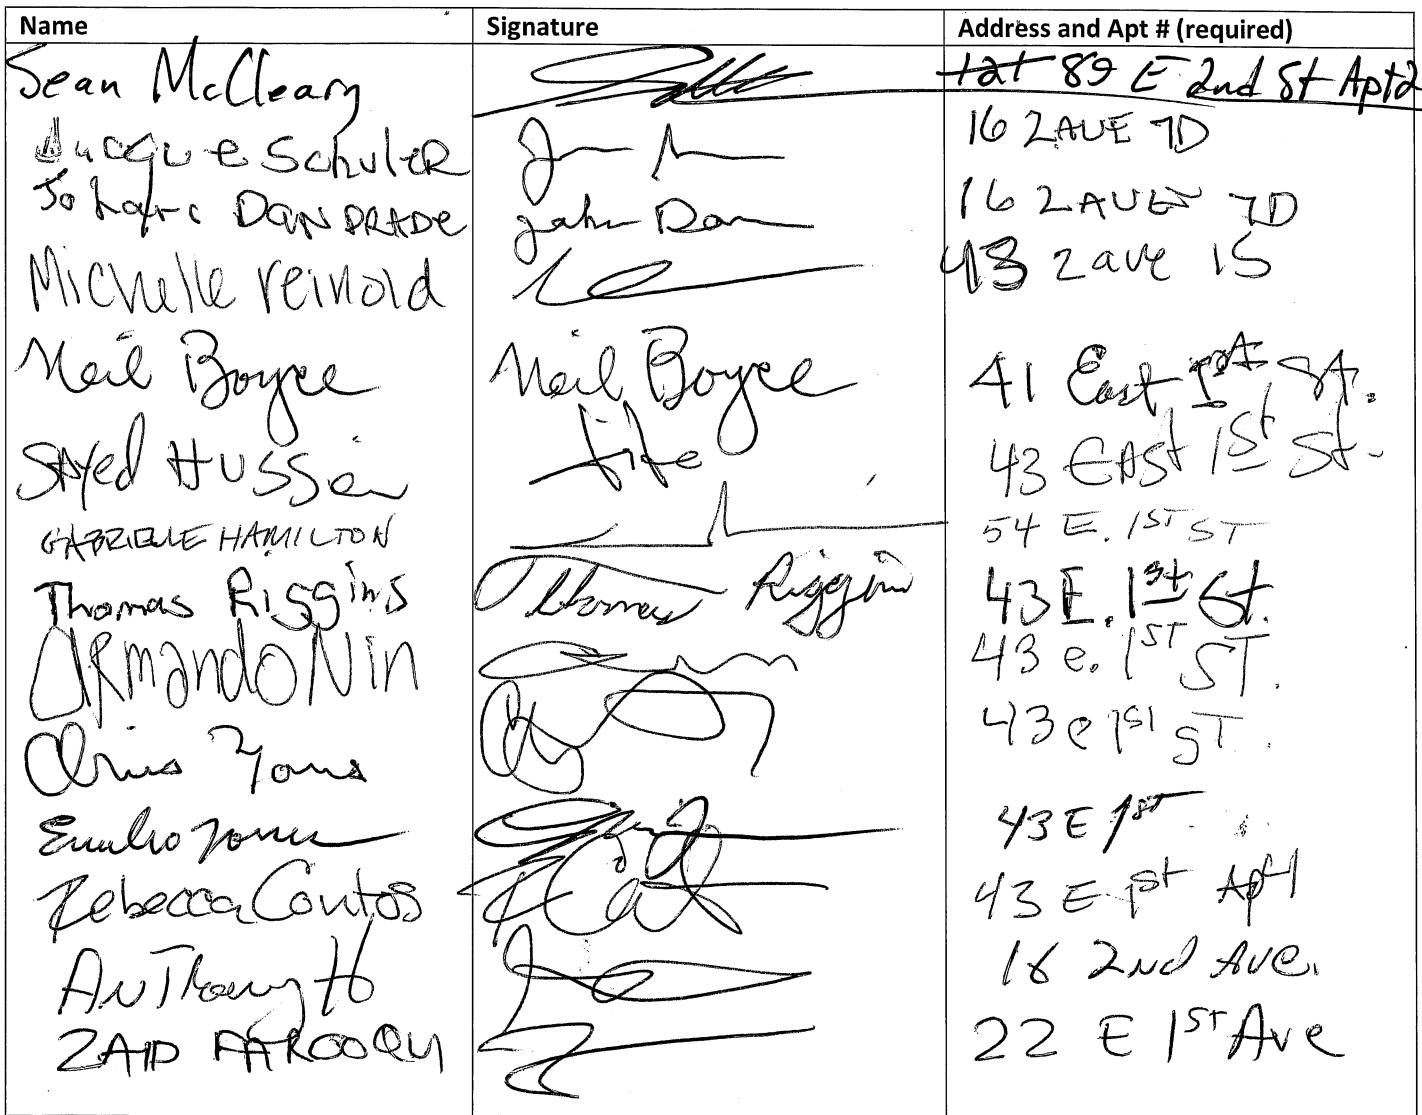 Name Signature Address and Apt # (required)
Sean McCleary 89 E 2nd St Apt 2
Jacque SchuleR 16 2AVE 7D
DANDRADE John Dan 16 2AVE 7D
Michelle reinold 43 2 ave 15
Neil Boyce Neil Boyce 41 East 1st St.
SAyed HUSSein 43 EASt 1St St.
GABRIELLE HAMILTON 54 E. 1ST ST
Thomas Riggins Thomas Riggins 43 E. 1st St.
ARmando Nin 43 e. 1ST ST.
Chris 43 e 1st ST.
Emilio 43 E 1st
Rebecca Contos 43 E 1st Apt 1
AnThony H 16 2nd Ave.
ZAID FAROOQUI 22 E 1ST Ave